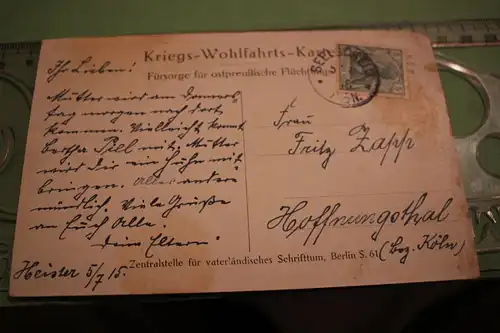 Kriegs-Wohlfahrts-Karte
Fürsorge für ostpreußische Flüchtlinge
Ihr Lieben!
Mutter wird am Donners-
tag morgen nach dort
kommen. Vielleicht kommt
Bertha Pill mit. Mutter
wird dir ein Huhn mit
bringen. Alles andere
mündlich. Viele Grüße
an Euch Alle.
Deine Eltern
Heister 5/7 15.
Frau
Fritz Zapp
Hoffnungsthal
(Bez. Köln)
Zentralstelle für vaterländisches Schrifttum, Berlin S. 61